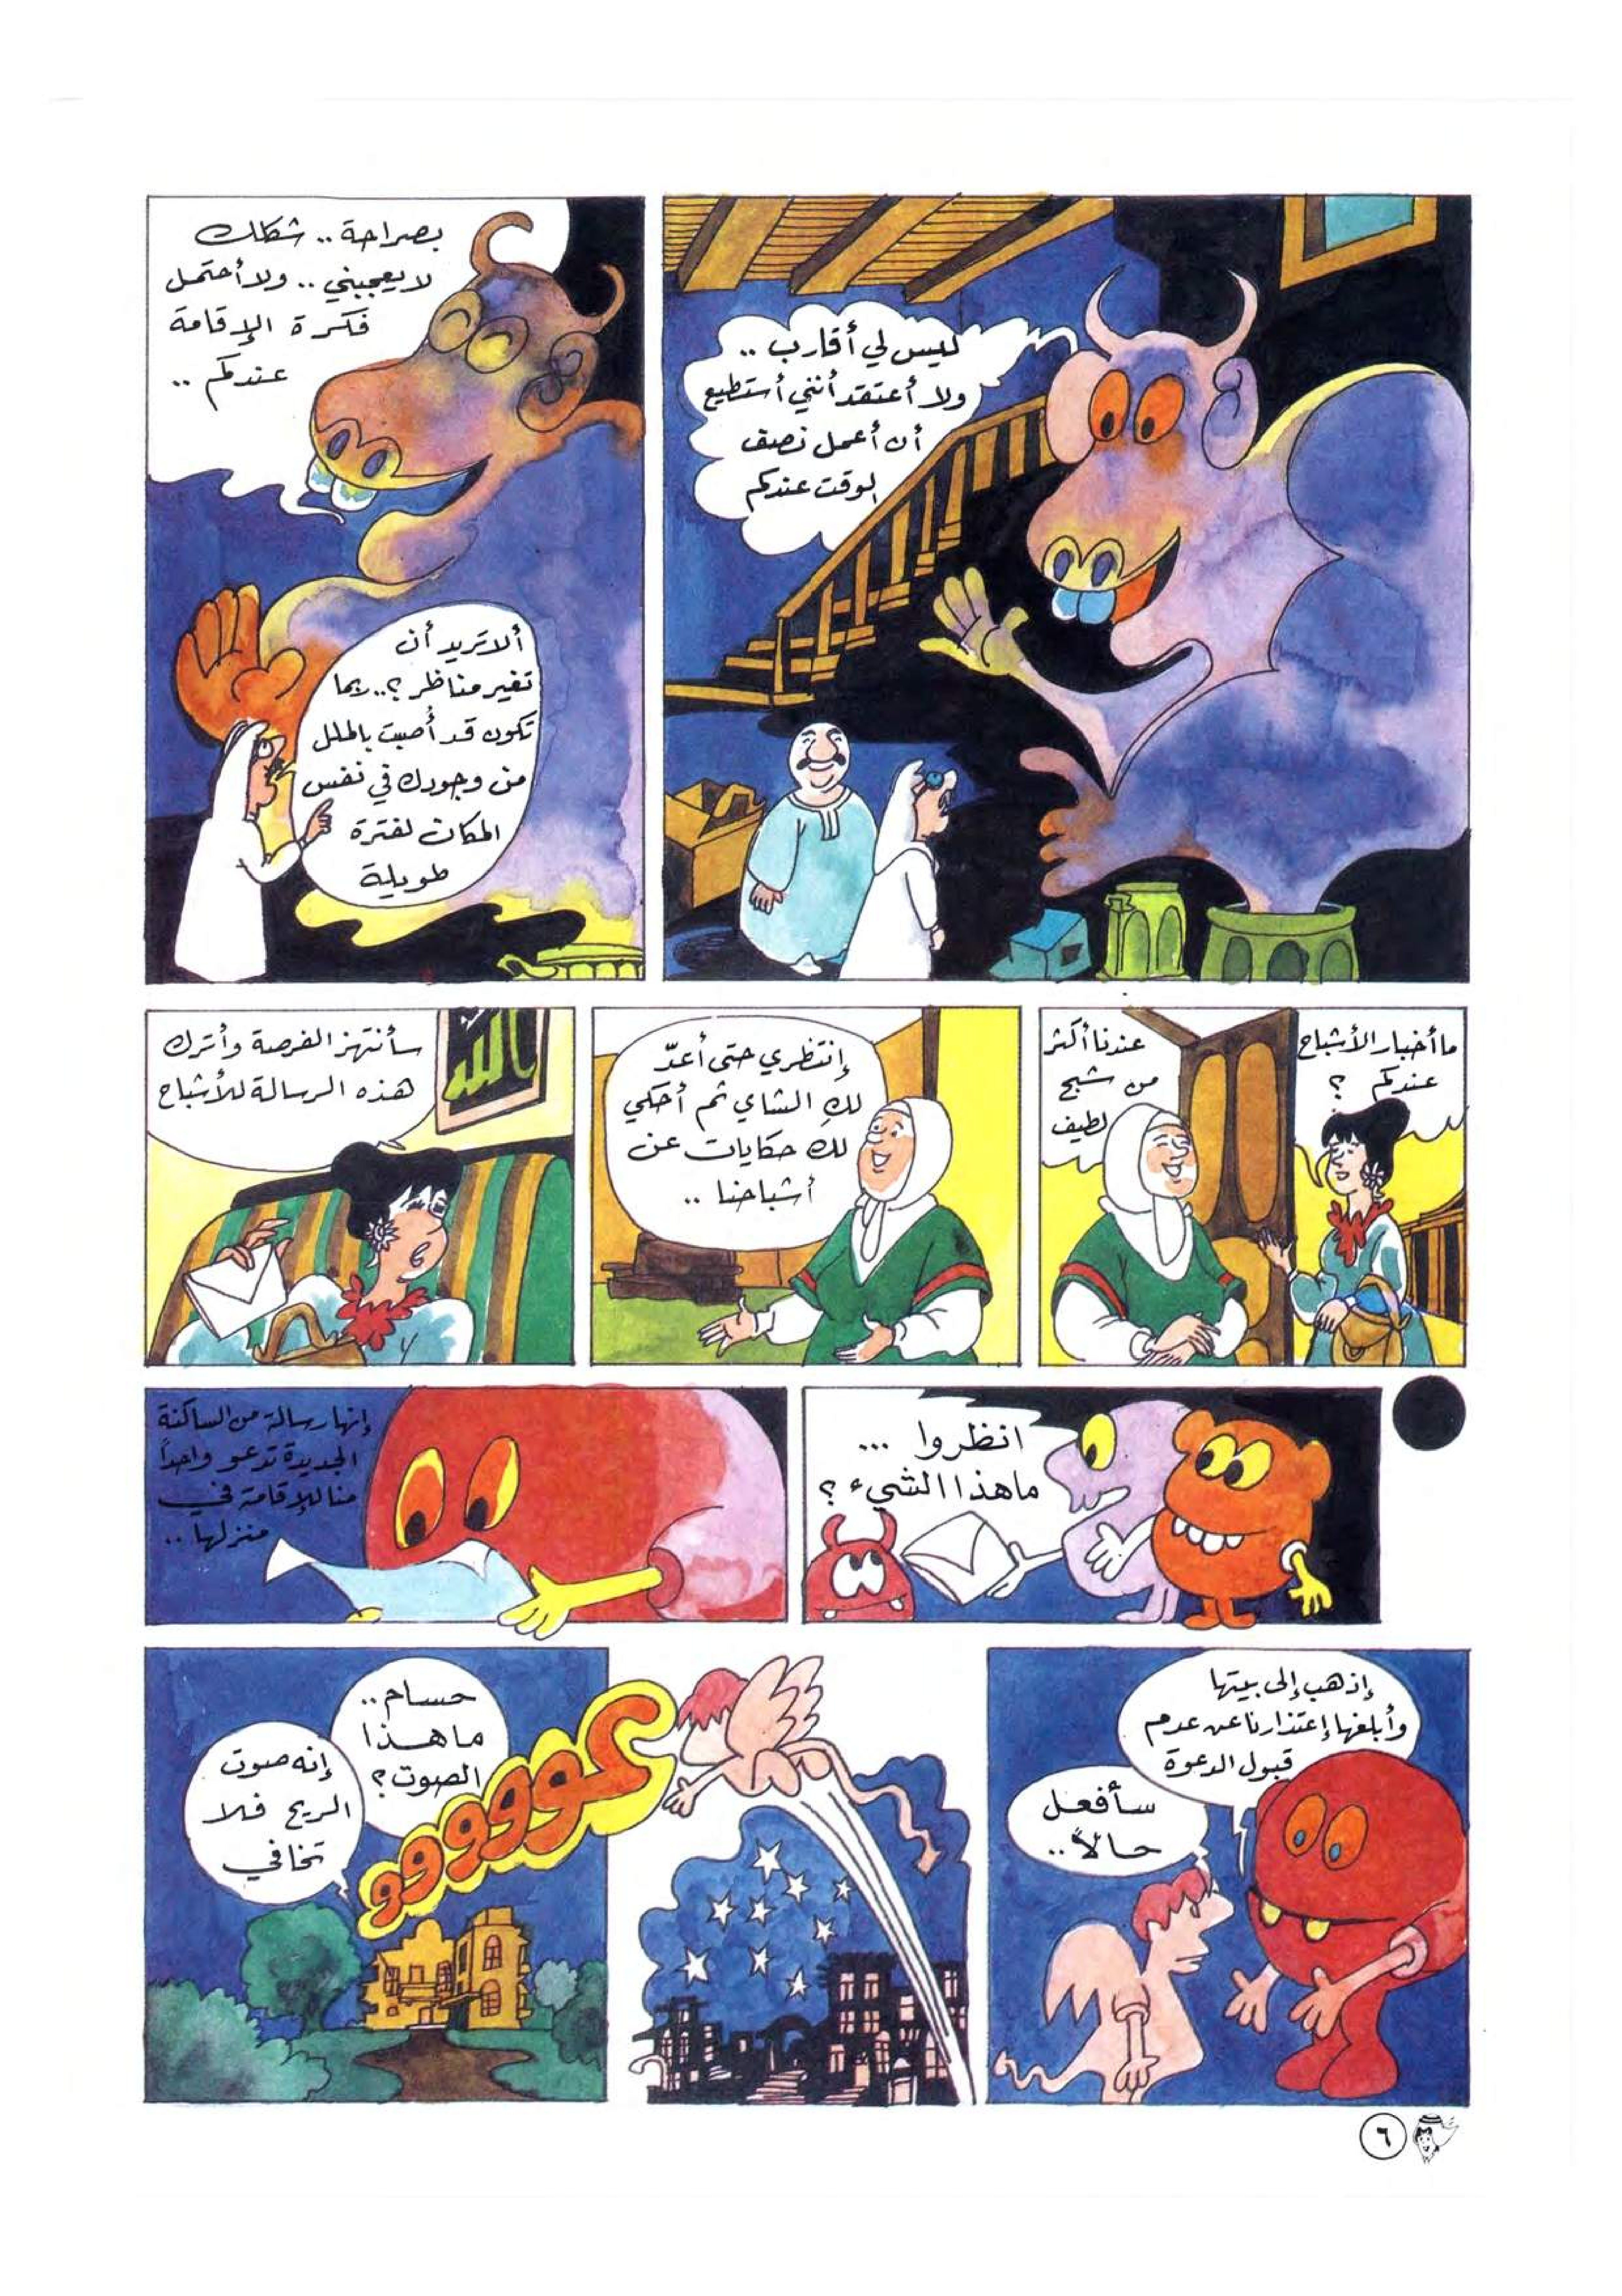 ليس لي أقارب ..
ولا أعتقد أنني أستطيع
أن أعمل نصف
الوقت عندكم
بصراحة .. شكلك
لا يعجبني .. ولا أحتمل
فكرة الإقامة
عندكم ..
ألا تريد أن
تغير مناظر ؟.. ربما
تكون قد أُصبت بالملل
من وجودك في نفس
المكان لفترة
طويلة
ما أخبار الأشباح
عندكم ؟
عندنا أكثر
من شبح
لطيف
إنتظري حتى أعدّ
لكِ الشاي ثم أحكي
لك حكايات عن
أشباحنا ..
سأنتهز الفرصة وأترك
هذه الرسالة للأشباح
انظروا ...
ما هذا الشيء ؟
إنها رسالة من الساكنة
الجديدة تدعو واحداً
منا للإقامة في
منزلها ..
إذهب إلى بيتها
وأبلغها إعتذارنا عن عدم
قبول الدعوة
سأفعل
حالاً ..
حسام ..
ما هذا
الصوت ؟
إنه صوت
الريح فلا
تخافي
٦